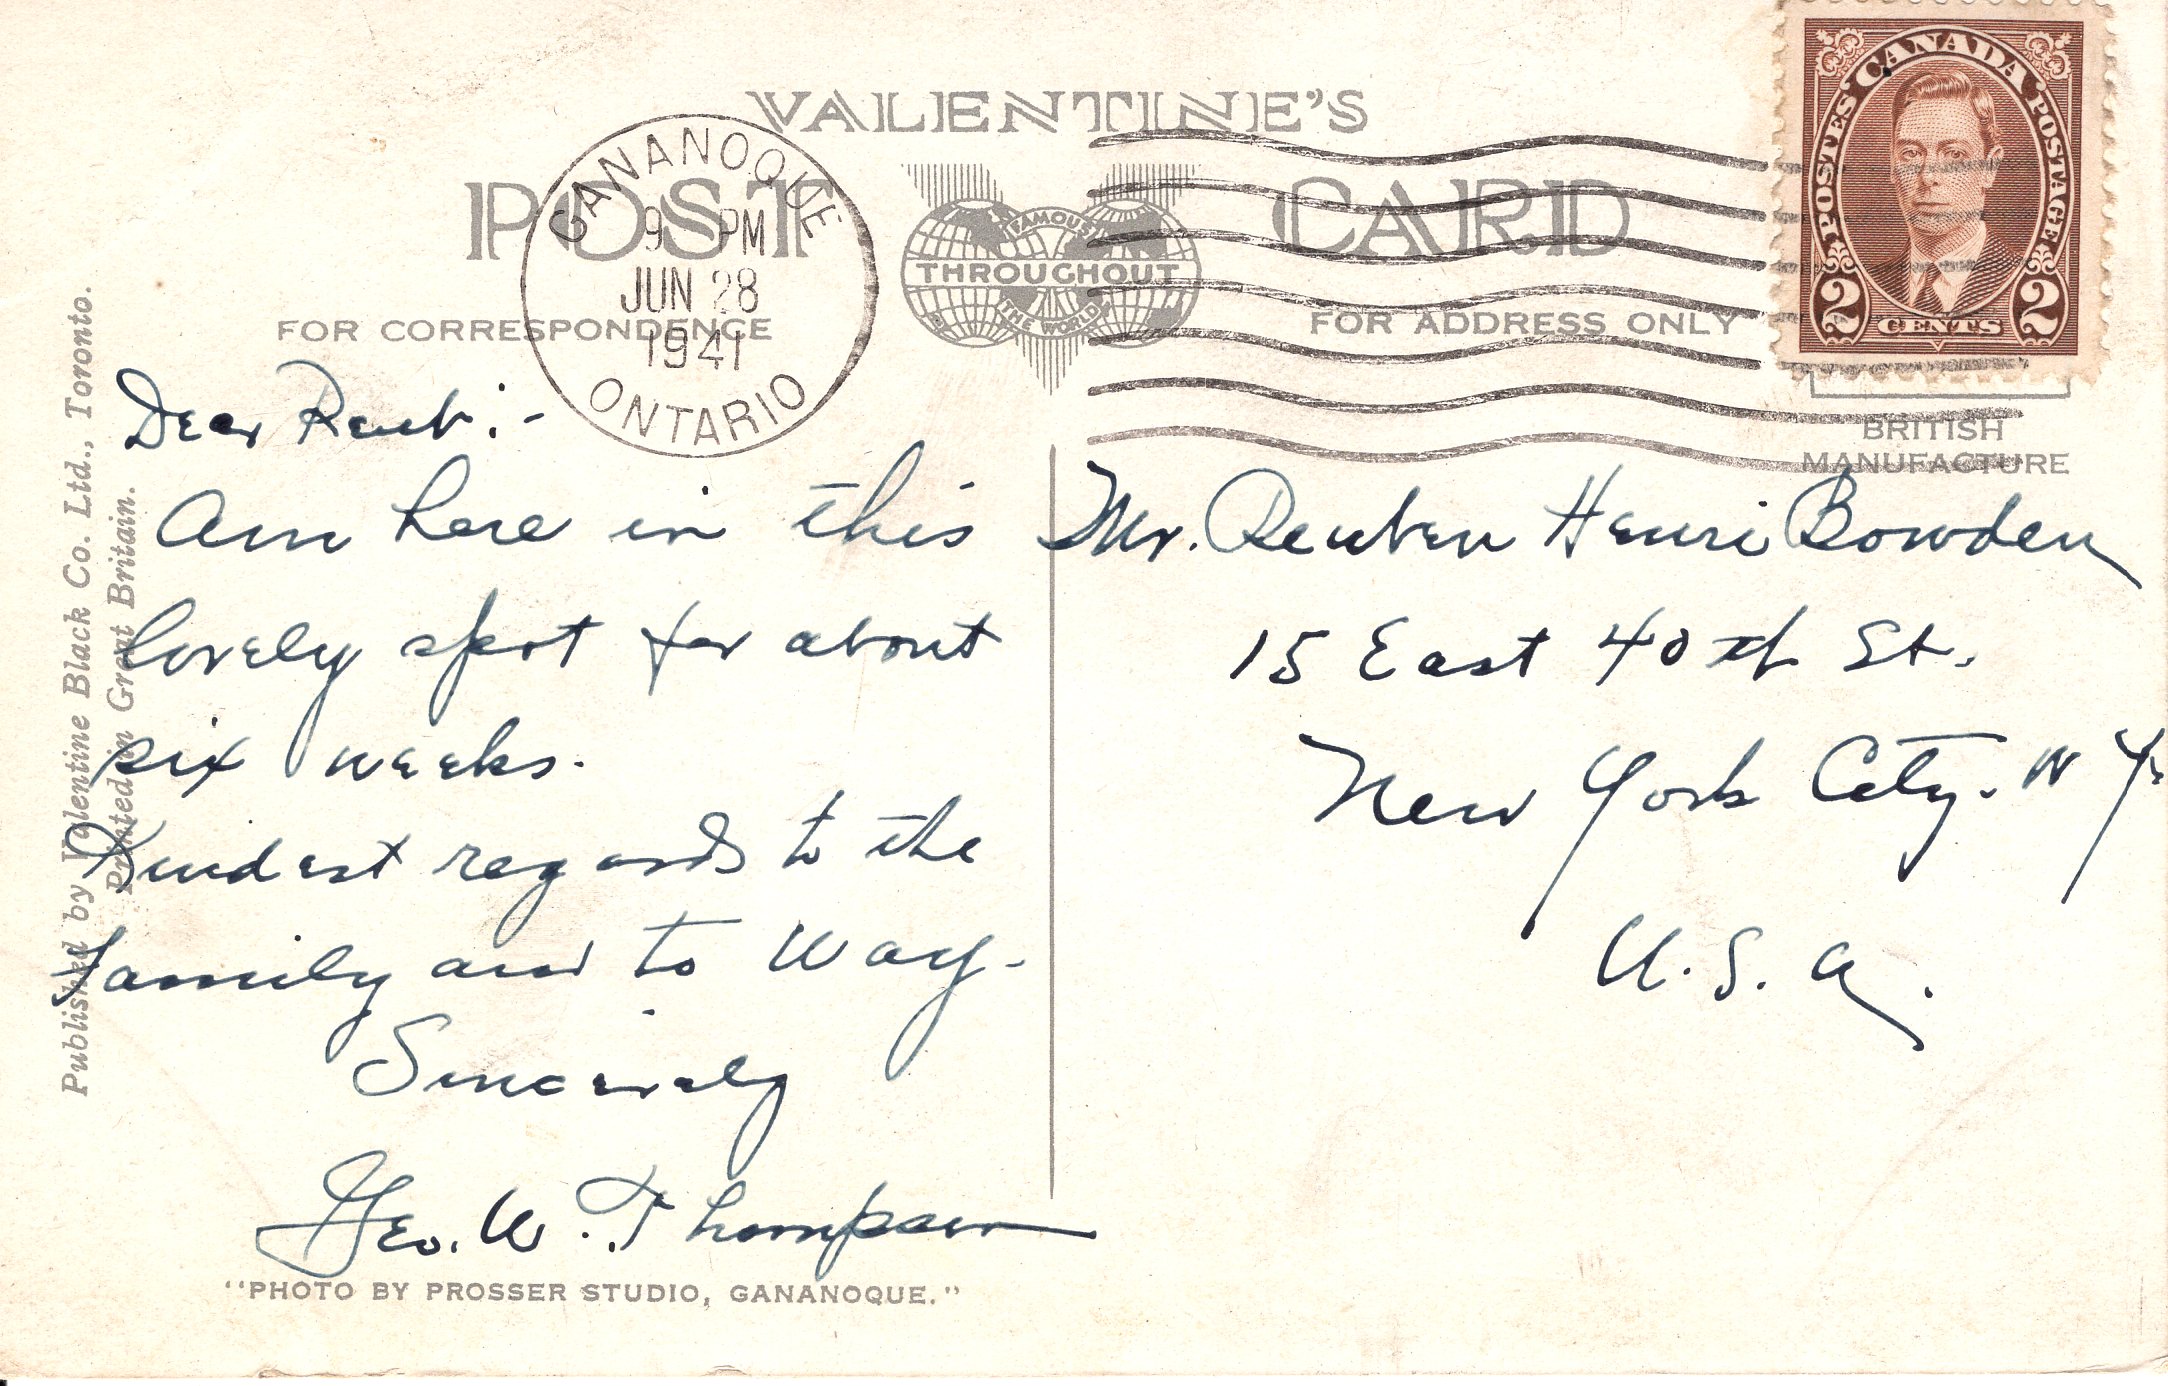 VALENTINE'S
POST CARD
FAMOUS
THROUGHOUT
THE WORLD
FOR CORRESPONDENCE
FOR ADDRESS ONLY
GANANOQUE
9 PM
JUN 28
1941
ONTARIO
POSTES CANADA POSTAGE
2 CENTS 2
BRITISH
MANUFACTURE
Published by Valentine Black Co. Ltd., Toronto.
Printed in Great Britain.
Dear Reub:-
Am here in this
lovely spot for about
six weeks.
Kindest regards to the
family and to Way.
Sincerely
Geo. W. Thompson
Mr. Reuben Henri Bowden
15 East 40th St.
New York City. N Y.
U. S. A.
"PHOTO BY PROSSER STUDIO, GANANOQUE."